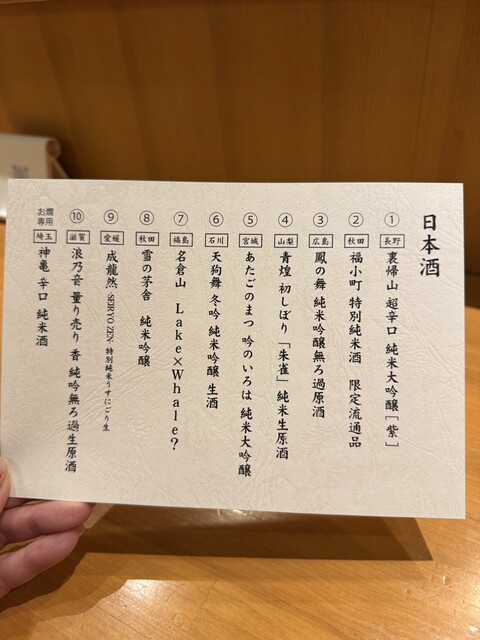 日本酒
① 長野 裏帰山 超辛口 純米大吟醸「紫」
② 秋田 福小町 特別純米酒 限定流通品
③ 広島 鳳の舞 純米吟醸無ろ過原酒
④ 山梨 青煌 初しぼり「朱雀」純米生原酒
⑤ 宮城 あたごのまつ 吟のいろは 純米大吟醸
⑥ 石川 天狗舞 冬吟 純米吟醸 生酒
⑦ 福島 名倉山 Lake×Whale?
⑧ 秋田 雪の茅舎 純米吟醸
⑨ 愛媛 成龍然-SEIRYO ZEN- 特別純米うすにごり生
⑩ 滋賀 浪乃音 量り売り 香 純吟無ろ過生原酒
お燗専用 埼玉 神亀 辛口 純米酒